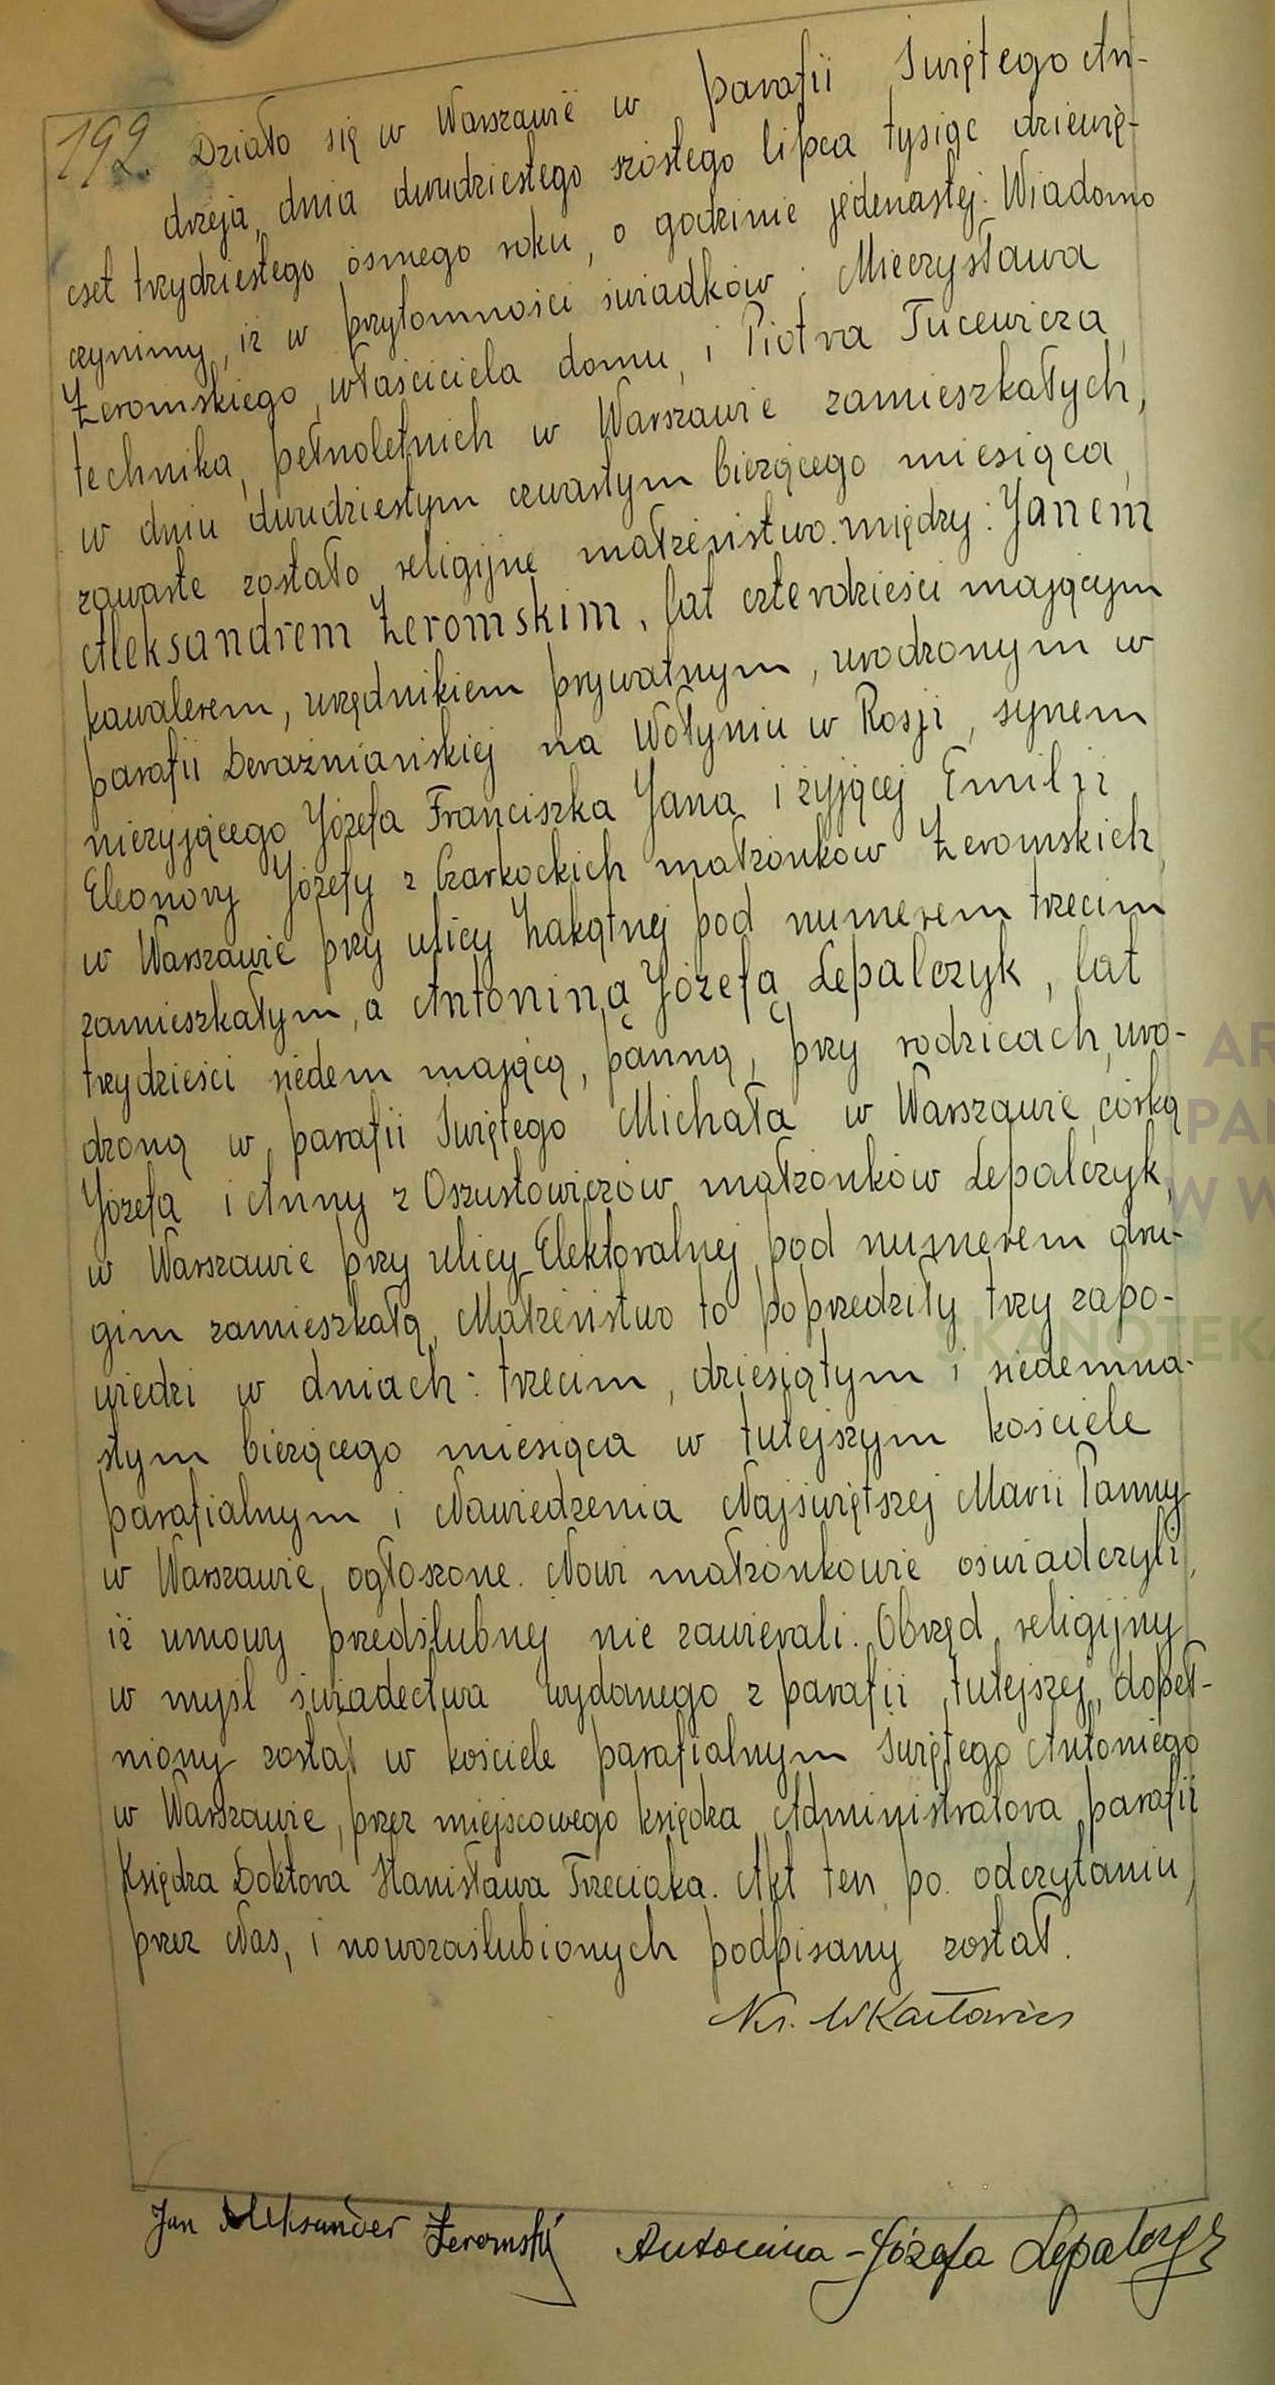 192. Działo się w Warszawie w parafii Świętego An-
drzeja, dnia dwudziestego szóstego lipca tysiąc dziewię-
ćset trzydziestego ósmego roku, o godzinie jedenastej. Wiadomo
czynimy, iż w przytomności świadków: Mieczysława
Żeromskiego, właściciela domu, i Piotra Tucewicza,
technika, pełnoletnich w Warszawie zamieszkałych,
w dniu dwudziestym czwartym bieżącego miesiąca,
zawarte zostało religijne małżeństwo między: Janem
Aleksandrem Żeromskim, lat czterdzieści mającym
kawalerem, urzędnikiem prywatnym, urodzonym w
parafii Derażniańskiej na Wołyniu w Rosji, synem
nieżyjącego Józefa Franciszka Jana i żyjącej Emilii
Eleonory Józefy z Czarkockich małżonków Żeromskich,
w Warszawie przy ulicy Zakątnej pod numerem trzecim
zamieszkałym, a Antoniną Józefą Lepalczyk, lat
trzydzieści siedem mającą, panną, przy rodzicach, uro-
dzoną w parafii Świętego Michała w Warszawie, córką
Józefa i Anny z Oszustowiczów małżonków Lepalczyk,
w Warszawie przy ulicy Elektoralnej pod numerem dru-
gim zamieszkałą. Małżeństwo to poprzedziły trzy zapo-
wiedzi w dniach: trzecim, dziesiątym i siedemna-
stym bieżącego miesiąca w tutejszym kościele
parafialnym i Nawiedzenia Najświętszej Marii Panny
w Warszawie, ogłoszone. Nowi małżonkowie oświadczyli,
iż umowy przedślubnej nie zawierali. Obrzęd religijny
w myśl świadectwa wydanego z parafii tutejszej, dopeł-
niony został w kościele parafialnym Świętego Antoniego
w Warszawie, przez miejscowego księdza Administratora parafii
Księdza Doktora Stanisława Trzeciaka. Akt ten po odczytaniu,
przez Nas, i nowozaślubionych podpisany został.
Jan Aleksander Żeromski Antonina-Józefa Lepalczyk
AR
PA
W W
SKANOTEKA